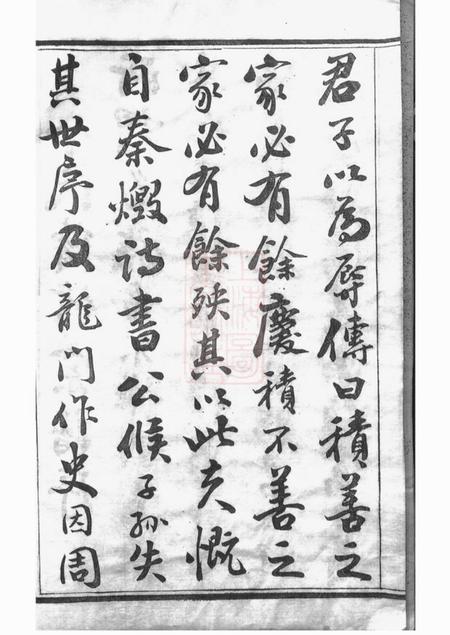 君子以為辱傳曰積善之
家必有餘慶積不善之
家必有餘殃其以此夫慨
自秦燬詩書公候子孫失
其世序及龍門作史因周